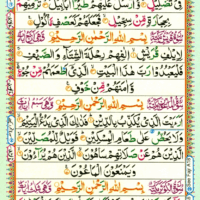 فِي تَضْلِيلٍ وَأَرْسَلَ عَلَيْهِمْ طَيْرًا أَبَابِيلَ تَرْمِيهِمْ
بِحِجَارَةٍ مِنْ سِجِّيلٍ فَجَعَلَهُمْ كَعَصْفٍ مَأْكُولٍ
بِسْمِ اللهِ الرَّحْمٰنِ الرَّحِيْمِ
لِإِيلٰفِ قُرَيْشٍ إِيلٰفِهِمْ رِحْلَةَ الشِّتَاءِ وَالصَّيْفِ
فَلْيَعْبُدُوا رَبَّ هٰذَا الْبَيْتِ الَّذِي أَطْعَمَهُمْ مِنْ جُوعٍ
وَآمَنَهُمْ مِنْ خَوْفٍ
بِسْمِ اللهِ الرَّحْمٰنِ الرَّحِيْمِ
أَرَءَيْتَ الَّذِي يُكَذِّبُ بِالدِّينِ فَذٰلِكَ الَّذِي يَدُعُّ الْيَتِيمَ
وَلَا يَحُضُّ عَلَىٰ طَعَامِ الْمِسْكِينِ فَوَيْلٌ لِلْمُصَلِّينَ
الَّذِينَ هُمْ عَنْ صَلَاتِهِمْ سَاهُونَ الَّذِينَ هُمْ يُرَاءُونَ
وَيَمْنَعُونَ الْمَاعُونَ
بِسْمِ اللهِ الرَّحْمٰنِ الرَّحِيْمِ